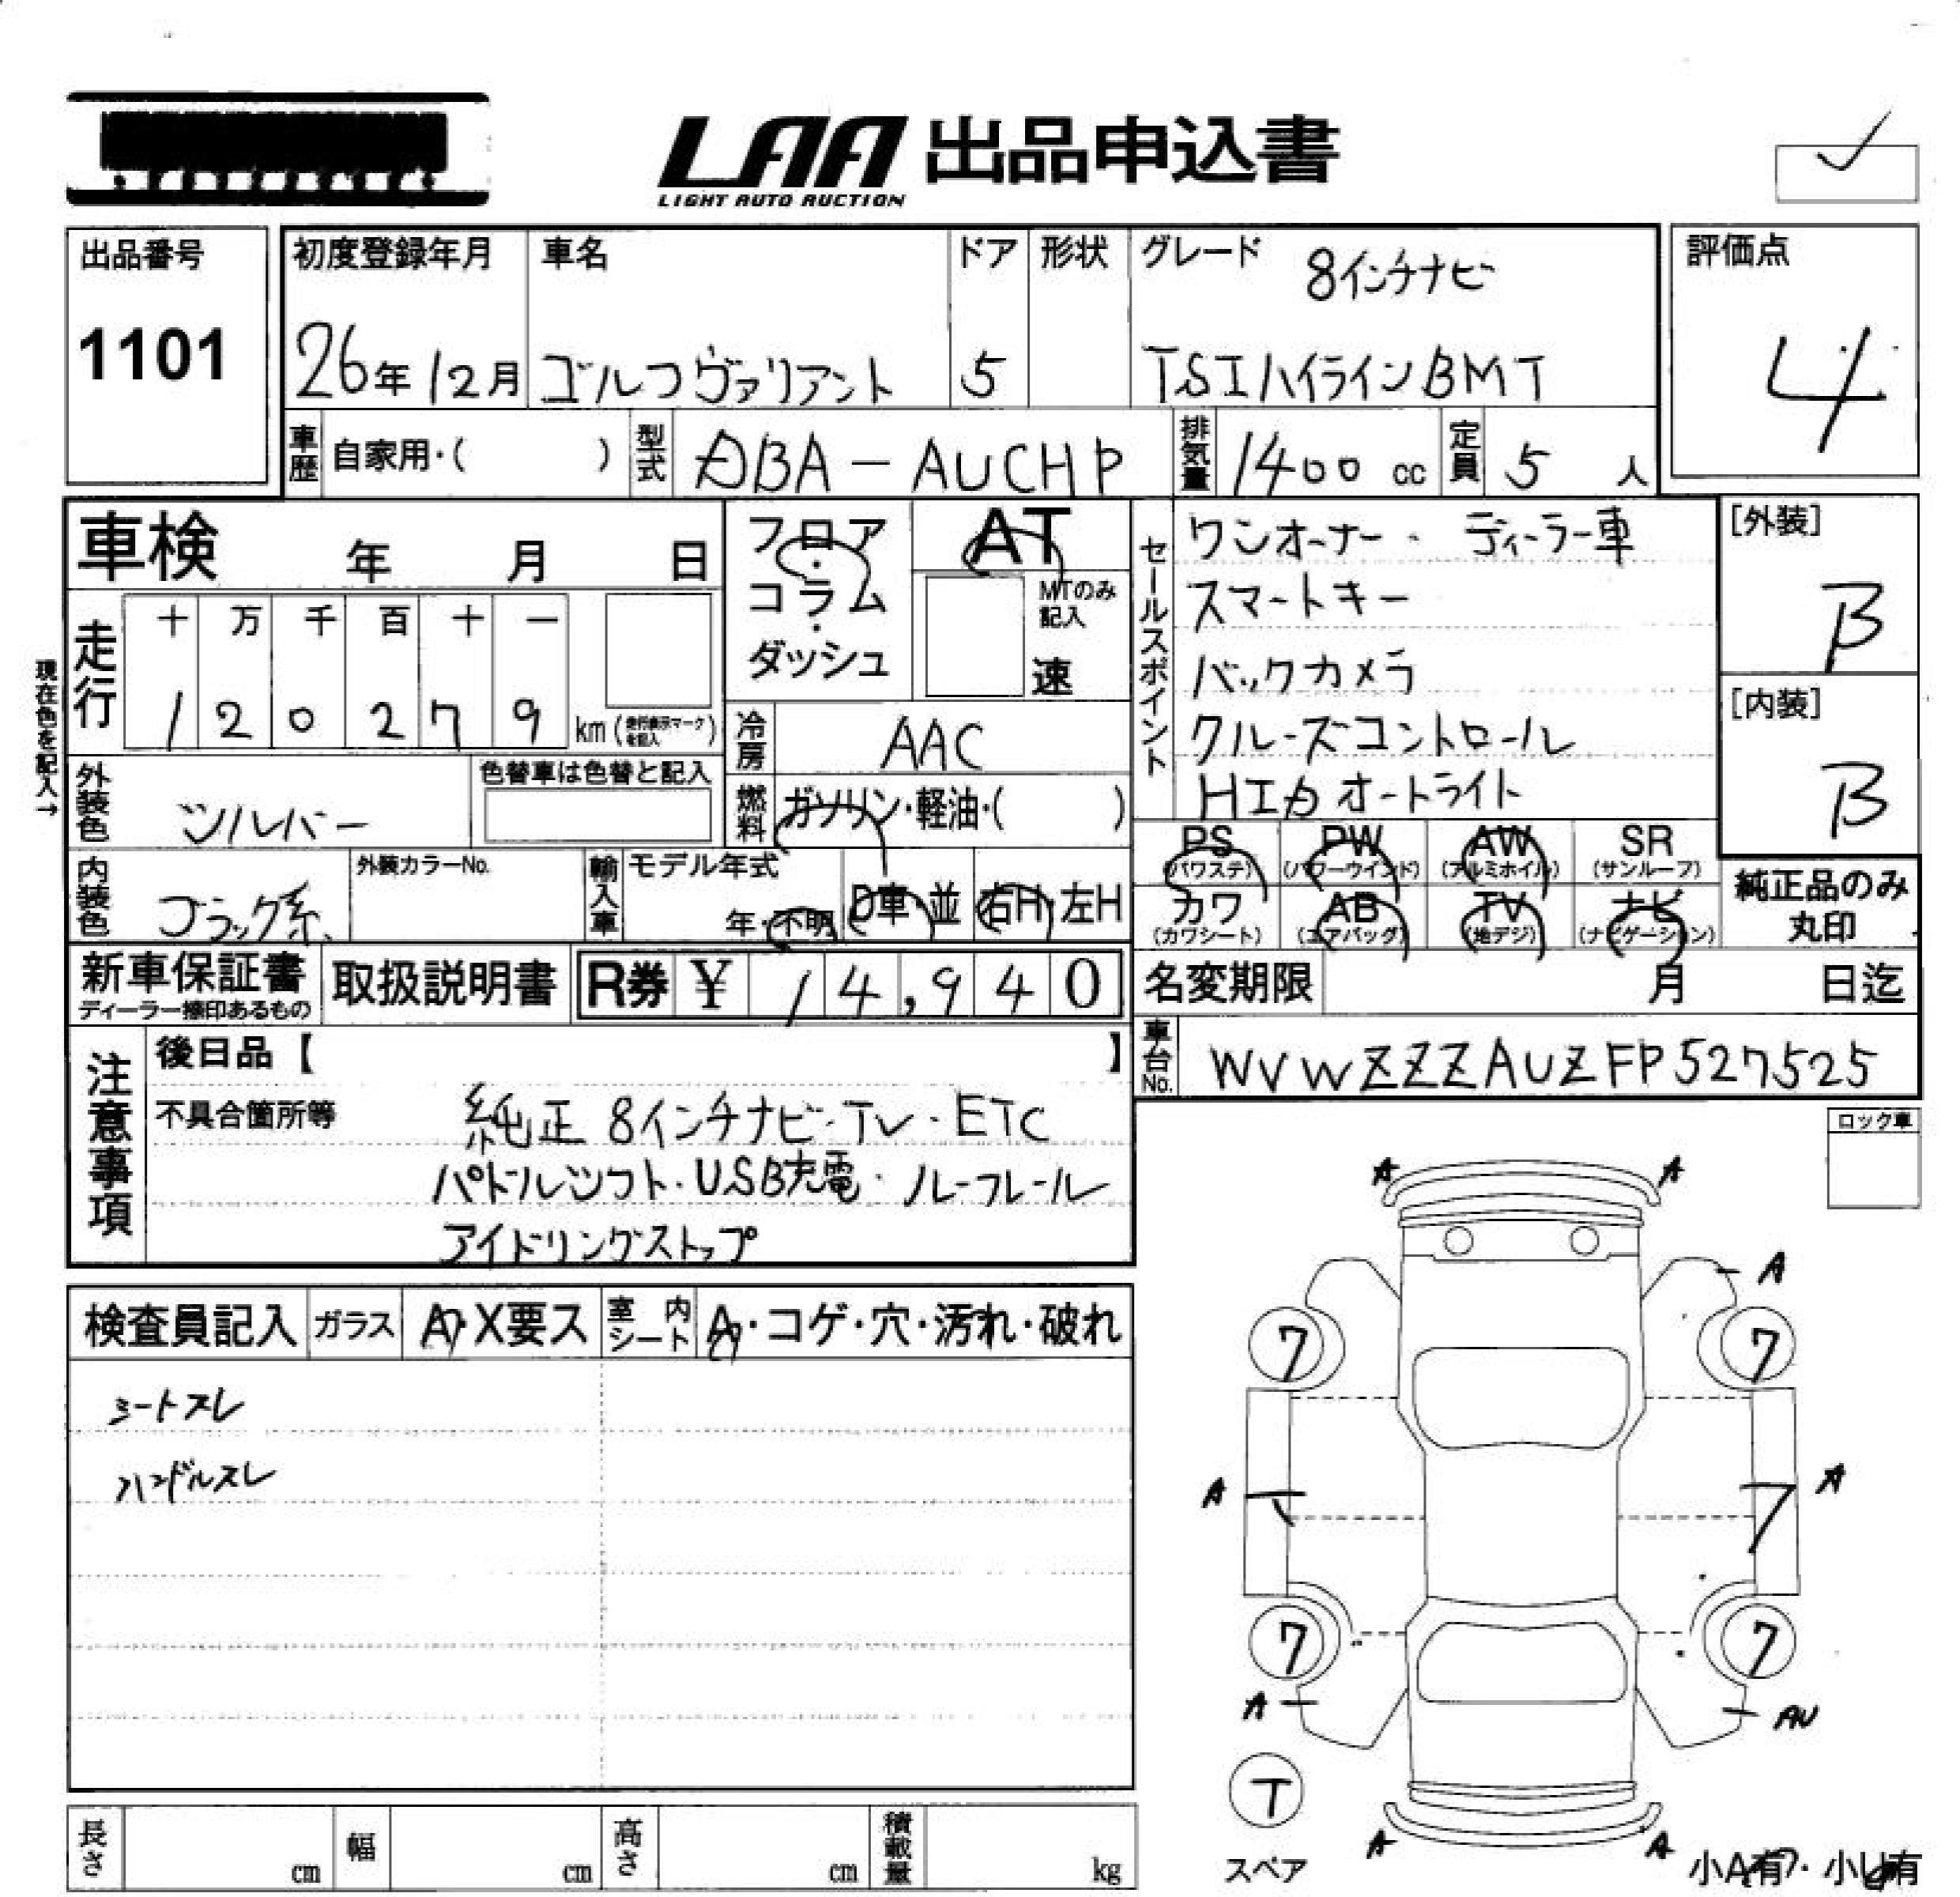 LAA 出品申込書
LIGHT AUTO AUCTION
出品番号
1101
初度登録年月
26年12月
車名
ゴルフヴァリアント
ドア
5
形状
グレード
8インチナビ
TSIハイラインBMT
評価点
4
車歴
自家用・( )
型式
DBA-AUCHP
排気量
1400 cc
定員
5 人
車検 年 月 日
現在色を記入→
走行
十 万 千 百 十 一
1 2 0 2 7 9 km (走行表示マークを記入)
フロア・コラム・ダッシュ
AT
MTのみ記入
速
冷房
AAC
燃料
ガソリン・軽油・( )
外装色
シルバー
色替車は色替と記入
内装色
ブラック系
外装カラーNo.
輸入車
モデル年式
年・不明
D車・並
右H・左H
セールスポイント
ワンオーナー・ディーラー車
スマートキー
バックカメラ
クルーズコントロール
HID オートライト
[外装]
B
[内装]
B
PS (パワステ)
PW (パワーウインド)
AW (アルミホイル)
SR (サンルーフ)
カワ (カワシート)
AB (エアバッグ)
TV (地デジ)
ナビ (ナビゲーション)
純正品のみ丸印
新車保証書
ディーラー捺印あるもの
取扱説明書
R券 ¥ 14,940
名変期限 月 日迄
車台No.
WVWZZZAUZFP527525
注意事項
後日品【 】
不具合箇所等
純正 8インチナビ・TV・ETC
パドルシフト・USB充電・ルーフレール
アイドリングストップ
ロック車
検査員記入
ガラス
A・X要ス
室内シート
A・コゲ・穴・汚れ・破れ
シートスレ
ハンドルスレ
A A
A
7 7
A A
7 7
A AU
T
スペア
A A
小A有・小U有
長さ cm
幅 cm
高さ cm
積載量 kg